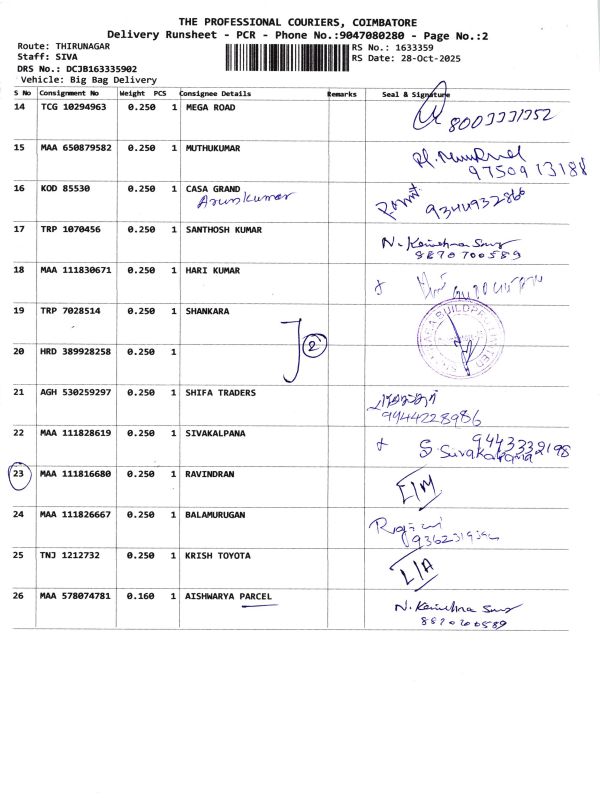 THE PROFESSIONAL COURIERS, COIMBATORE
Delivery Runsheet - PCR - Phone No.:9047080280 - Page No.:2
Route: THIRUNAGAR
RS No.: 1633359
Staff: SIVA
RS Date: 28-Oct-2025
DRS No.: DCJB163335902
Vehicle: Big Bag Delivery
S No Consignment No Weight PCS Consignee Details Remarks Seal & Signature
14 TCG 10294963 0.250 1 MEGA ROAD
15 MAA 650879582 0.250 1 MUTHUKUMAR
9750913188
16 KOD 85530 0.250 1 CASA GRAND
Arunkumar
9344932866
17 TRP 1070456 0.250 1 SANTHOSH KUMAR
8870700589
18 MAA 111830671 0.250 1 HARI KUMAR
19 TRP 7028514 0.250 1 SHANKARA
2
20 HRD 389928258 0.250 1
21 AGH 530259297 0.250 1 SHIFA TRADERS
9944228986
22 MAA 111828619 0.250 1 SIVAKALPANA
9443332198
S. Sivakalpana
23 MAA 111816680 0.250 1 RAVINDRAN
24 MAA 111826667 0.250 1 BALAMURUGAN
25 TNJ 1212732 0.250 1 KRISH TOYOTA
L/A
26 MAA 578074781 0.160 1 AISHWARYA PARCEL
8870700589